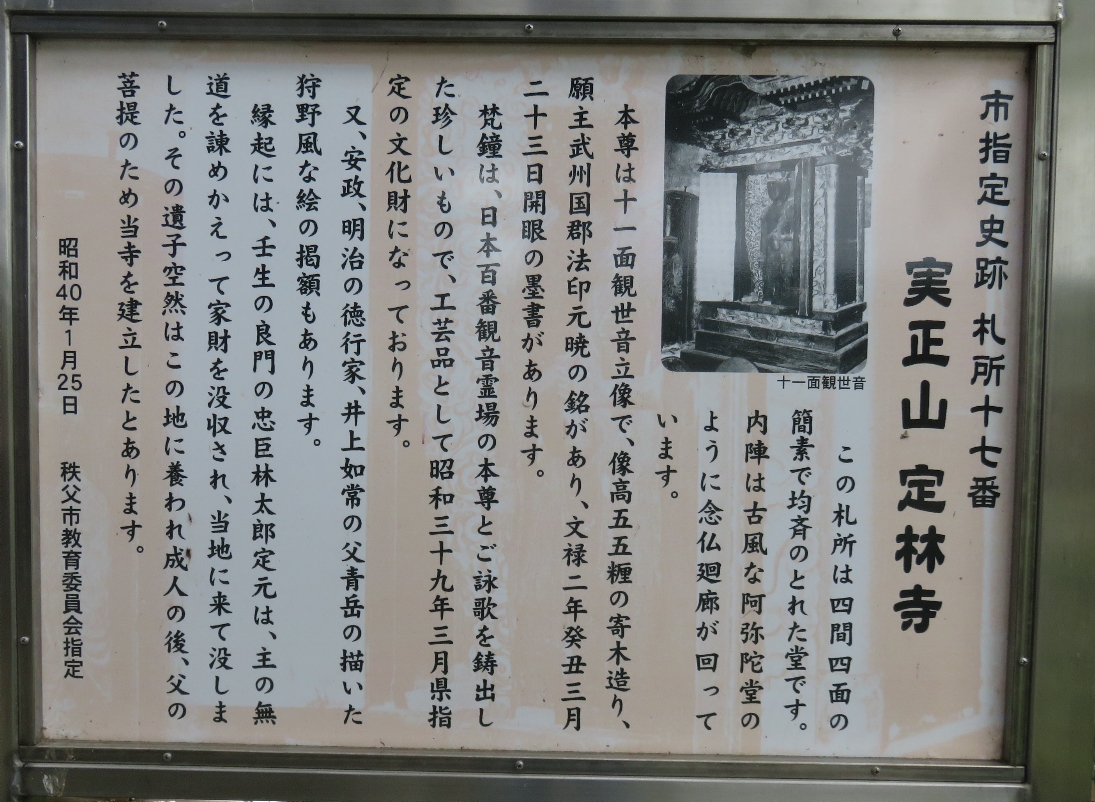 市指定史跡 札所十七番
実正山 定林寺
この札所は四間四面の
簡素で均斉のとれた堂です。
内陣は古風な阿弥陀堂の
ように念仏廻廊が回って
います。
十一面観世音
本尊は十一面観世音立像で、像高五五糎の寄木造り、
願主武州国郡法印元暁の銘があり、文禄二年癸丑三月
二十三日開眼の墨書があります。
梵鐘は、日本百番観音霊場の本尊とご詠歌を鋳出し
た珍しいもので、工芸品として昭和三十九年三月県指
定の文化財になっております。
又、安政、明治の徳行家、井上如常の父青岳の描いた
狩野風な絵の掲額もあります。
縁起には、壬生の良門の忠臣林太郎定元は、主の無
道を諌めかえって家財を没収され、当地に来て没しま
した。その遺子空然はこの地に養われ成人の後、父の
菩提のため当寺を建立したとあります。
昭和40年1月25日 秩父市教育委員会指定